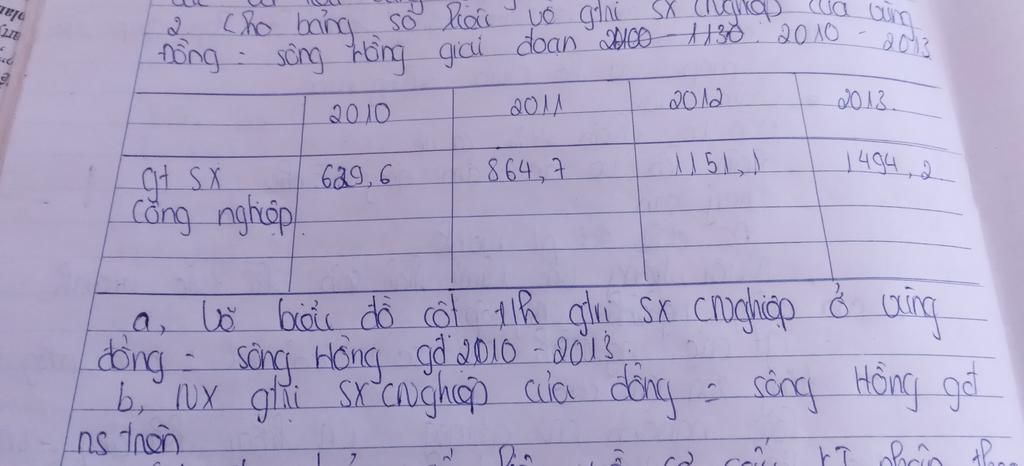 2. Cho bảng số liệu về gtri SX cnghiệp của vùng
đồng = sông Hồng giai đoạn 2010 - 2013
2010 2011 2012 2013.
gt SX 629,6 864,7 1151,1 1494,2
công nghiệp.
a, Vẽ biểu đồ cột gtri SX cnghiệp ở vùng
đồng = sông Hồng gđ 2010 - 2013.
b, NX gtri SX cnghiệp của đồng = sông Hồng gđ
trên